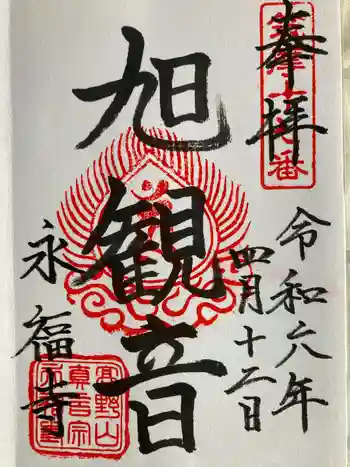 奉拝
令和六年
四月十二日
旭観音
永福寺
高野山
真言宗